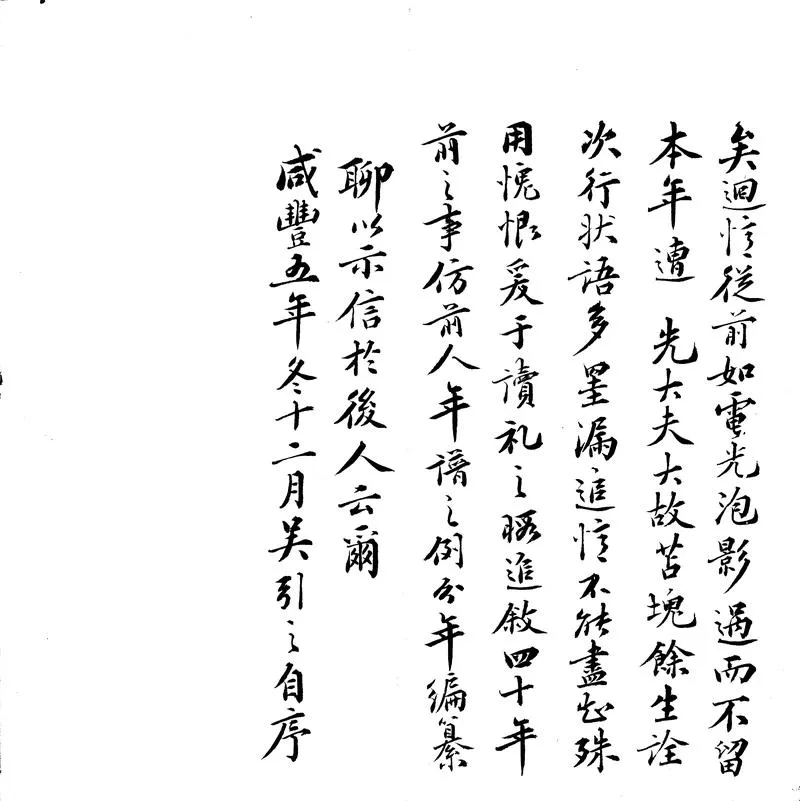 矣迴憶從前如電光泡影過而不留
本年遭 先大夫大故苫塊餘生詮
次行狀語多罣漏追憶不能盡忘殊
用愧恨爰于讀礼之暇追敘四十年
前之事仿前人年譜之例分年編纂
聊以示信於後人云爾
咸豐五年冬十二月吳引之自序